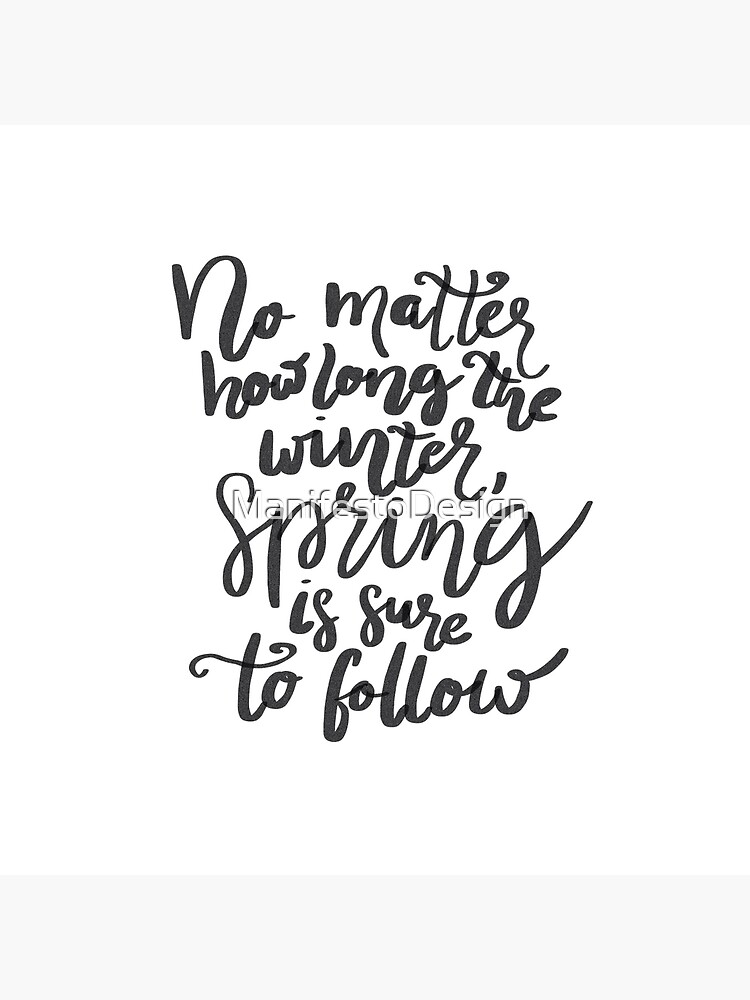 No matter
how long the
winter,
Spring
ManifestoDesign
is sure
to follow